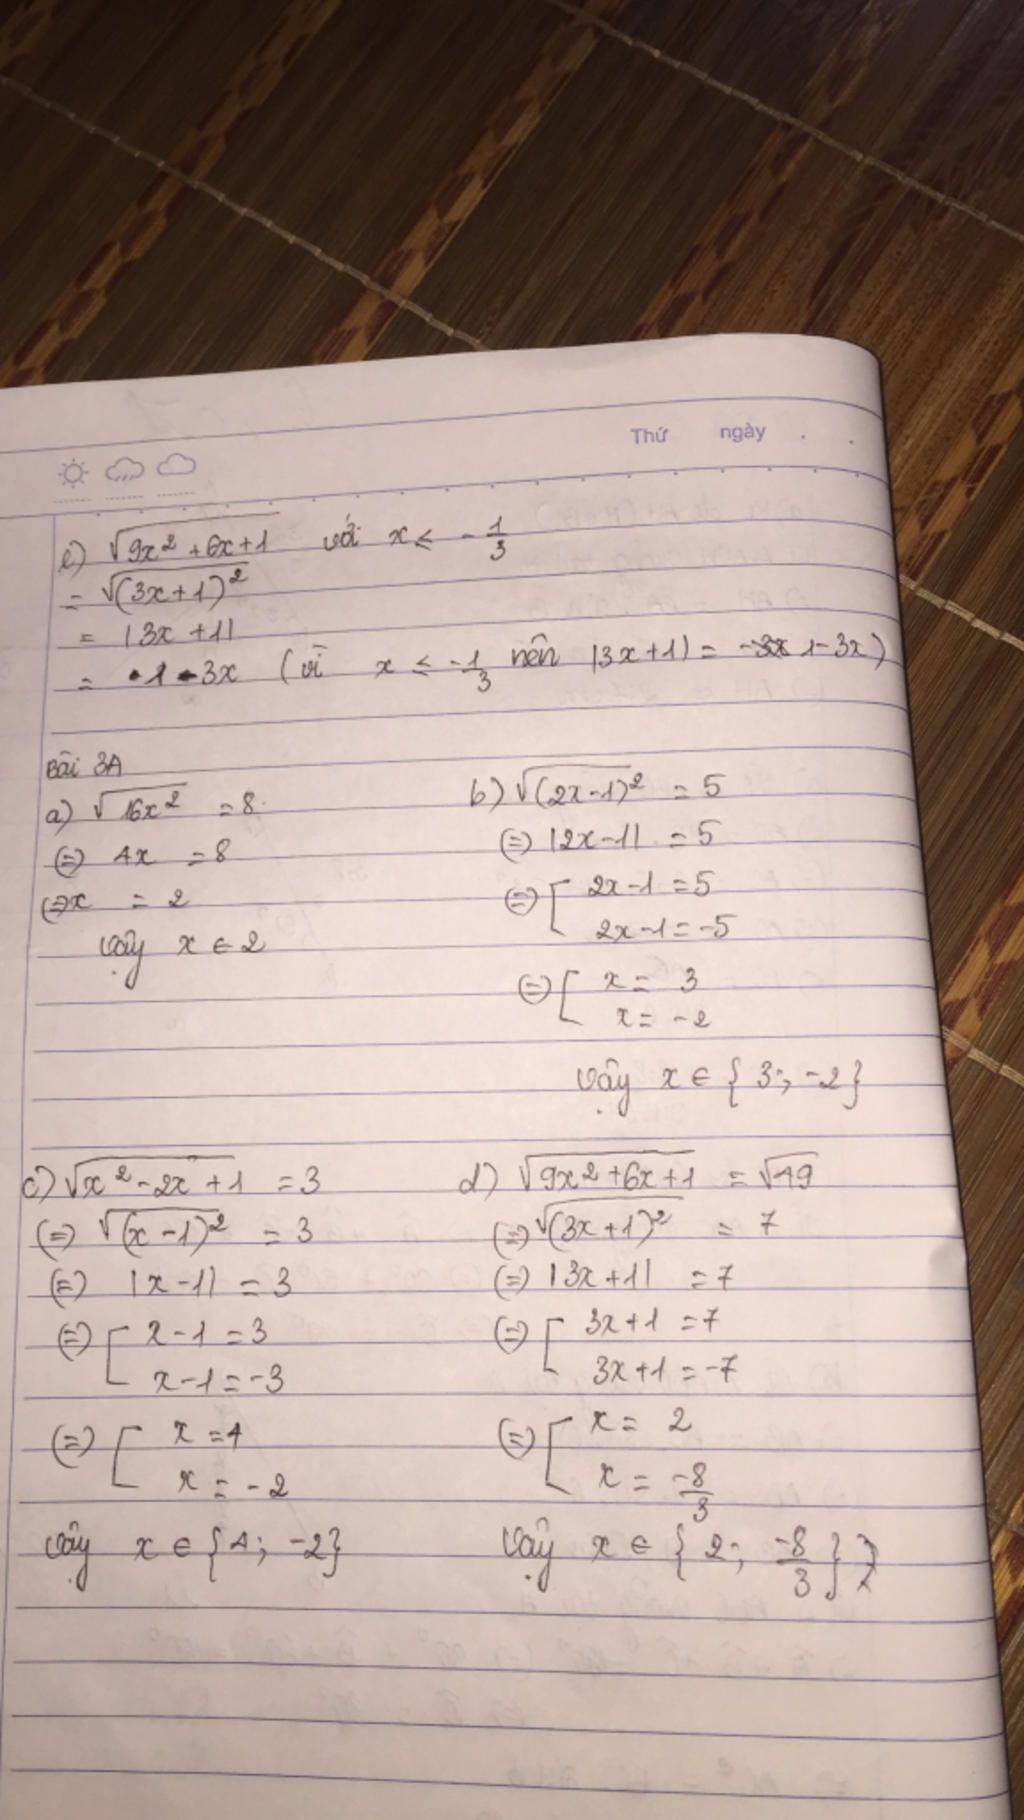 Thứ ngày . .
e) √(9x² + 6x + 1) với x ≤ - 1/3
= √((3x+1)²)
= |3x + 1|
= -1 - 3x (vì x ≤ -1/3 nên |3x+1| = -1-3x)
Bài 3A
a) √(16x²) = 8
(=) 4x = 8
(=) x = 2
Vậy x ∈ 2
b) √((2x-1)²) = 5
(=) |2x-1| = 5
(=) [ 2x-1 = 5
2x-1 = -5
(=) [ x = 3
x = -2
Vậy x ∈ { 3 ; -2 }
c) √(x² - 2x + 1) = 3
(=) √((x-1)²) = 3
(=) |x-1| = 3
(=) [ x-1 = 3
x-1 = -3
(=) [ x = 4
x = -2
Vậy x ∈ { 4 ; -2 }
d) √(9x² + 6x + 1) = √49
(=) √((3x+1)²) = 7
(=) |3x+1| = 7
(=) [ 3x+1 = 7
3x+1 = -7
(=) [ x = 2
x = -8/3
Vậy x ∈ { 2 ; -8/3 }